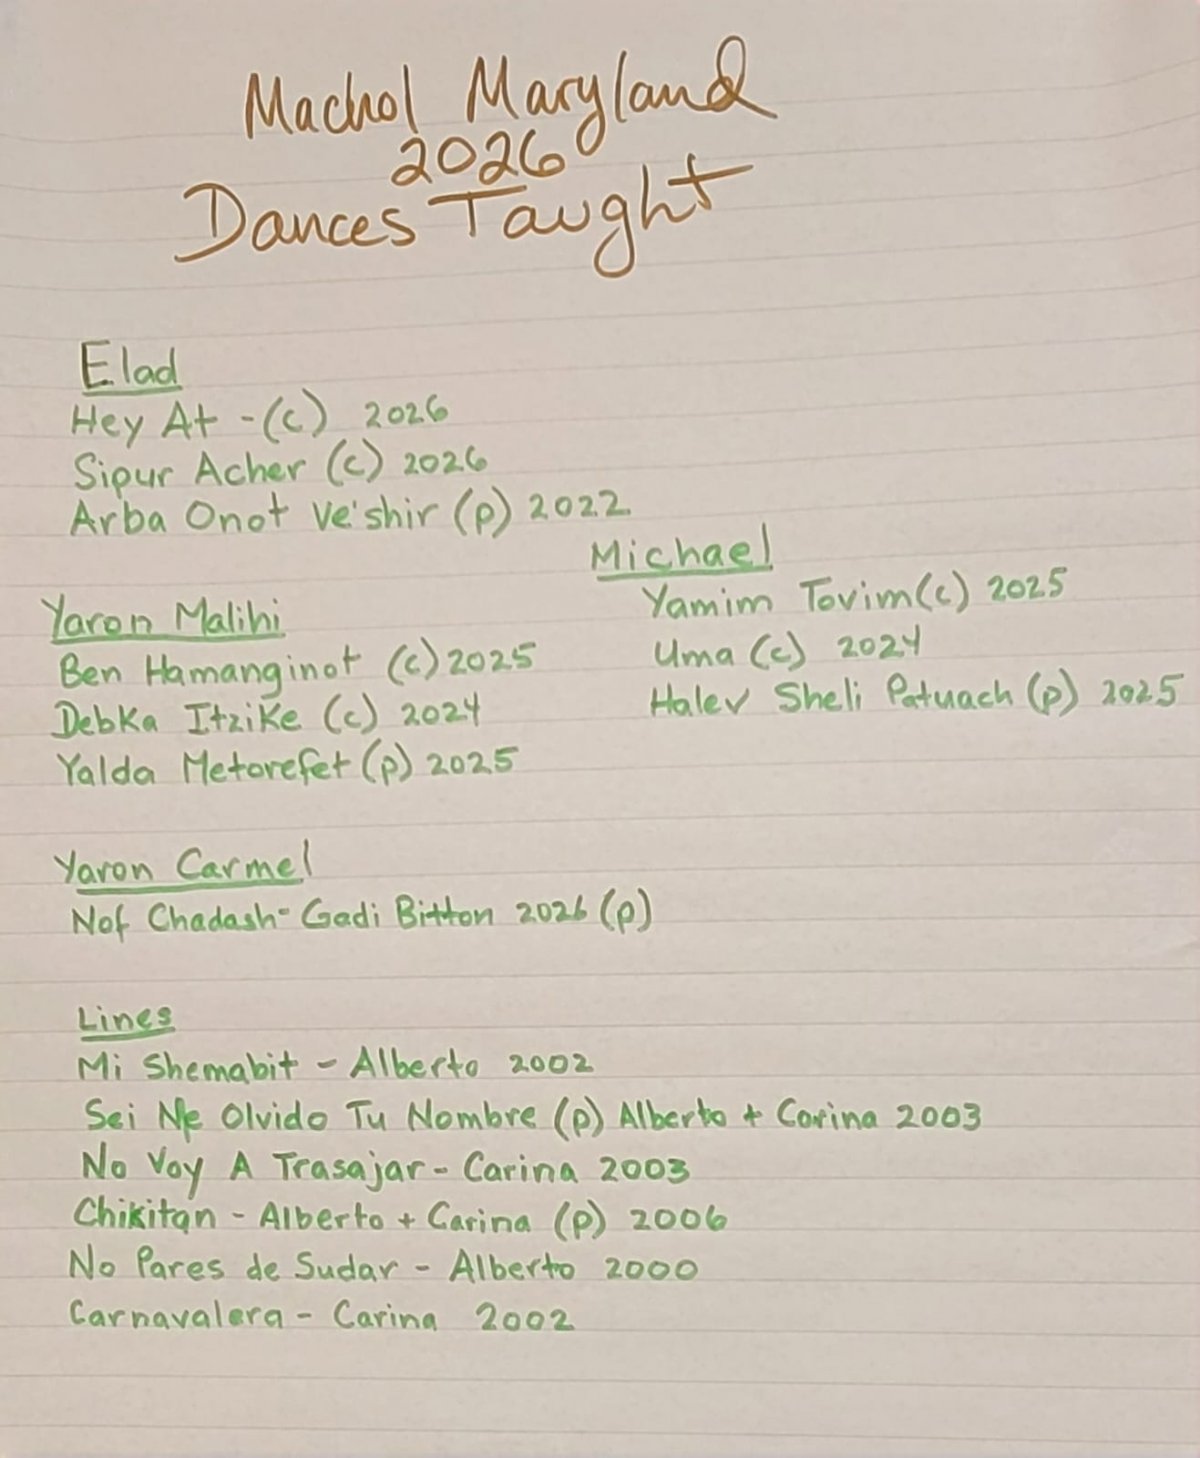 Machol Maryland
2026
Dances Taught
Elad
Hey At - (c) 2026
Sipur Acher (c) 2026
Arba Onot Ve'shir (p) 2022
Michael
Yamim Tovim (c) 2025
Uma (c) 2024
Halev Sheli Patuach (p) 2025
Yaron Malihi
Ben Hamanginot (c) 2025
Debka Itzike (c) 2024
Yalda Metorefet (p) 2025
Yaron Carmel
Nof Chadash - Gadi Bitton 2026 (p)
Lines
Mi Shemabit - Alberto 2002
Sei Me Olvido Tu Nombre (p) Alberto + Carina 2003
No Voy A Trasajar - Carina 2003
Chikitan - Alberto + Carina (p) 2006
No Pares de Sudar - Alberto 2000
Carnavalera - Carina 2002